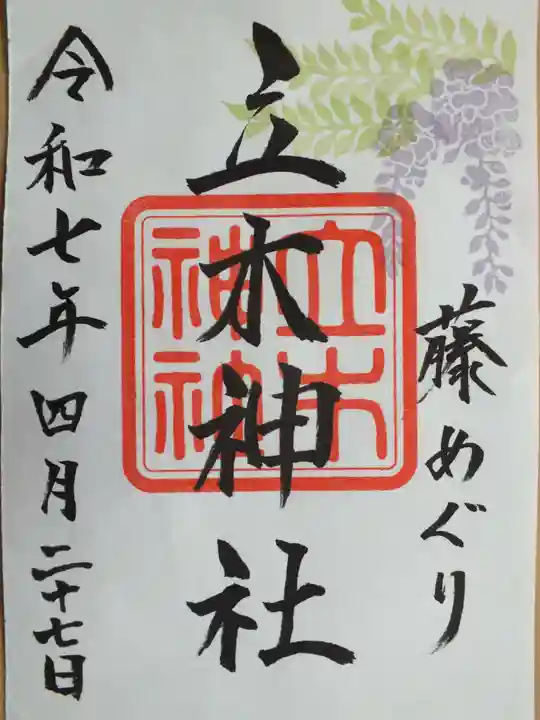 藤めぐり
立木神社
立木
神社
令和七年四月二十七日